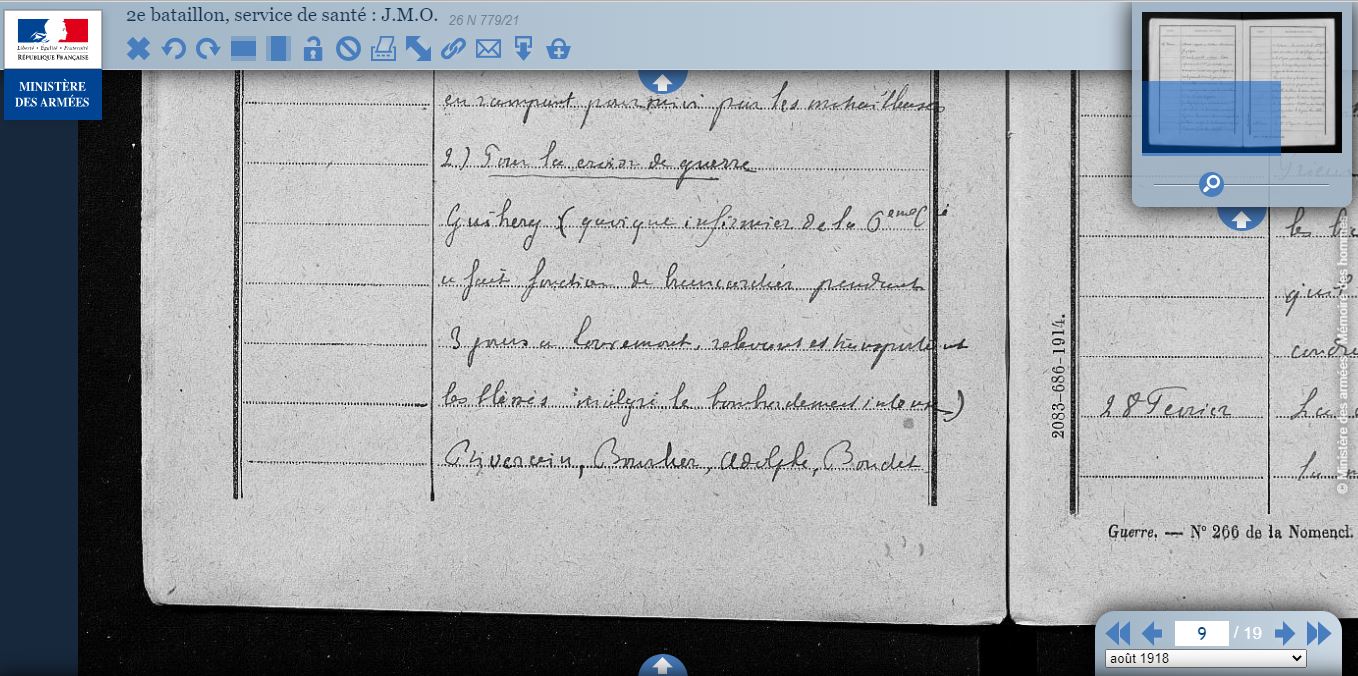 2e bataillon, service de santé : J.M.O. 26 N 779/21
Liberté • Égalité • Fraternité
RÉPUBLIQUE FRANÇAISE
MINISTÈRE
DES ARMÉES
en rampant poursuivi par les mitrailleuses
2) Pour la croix de guerre
Guihery (quoique infirmier de la 6eme Cie
a fait fonction de brancardier pendant
3 jours à Louvemont, relevant et transportant
les blessés malgré le bombardement intense)
Bourlier, Adolphe, Boudet
les
qui
2083-686-1914.
28 Fevrier
La
Guerre. — N° 266 de la Nomencl.
© Ministère des armées - Mémoire des hommes
9 / 19
août 1918